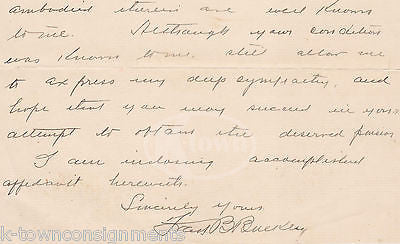 embodied therein are well known
to me. Although your condition
was known to me, still allow me
to express my deep sympathy, and
hope that you may succeed in your
attempt to obtain the deserved pension
I am inclosing accomplished
affidavit herewith.
Sincerely yours,
B. Buckley
k-townconsignments
k-townconsignments